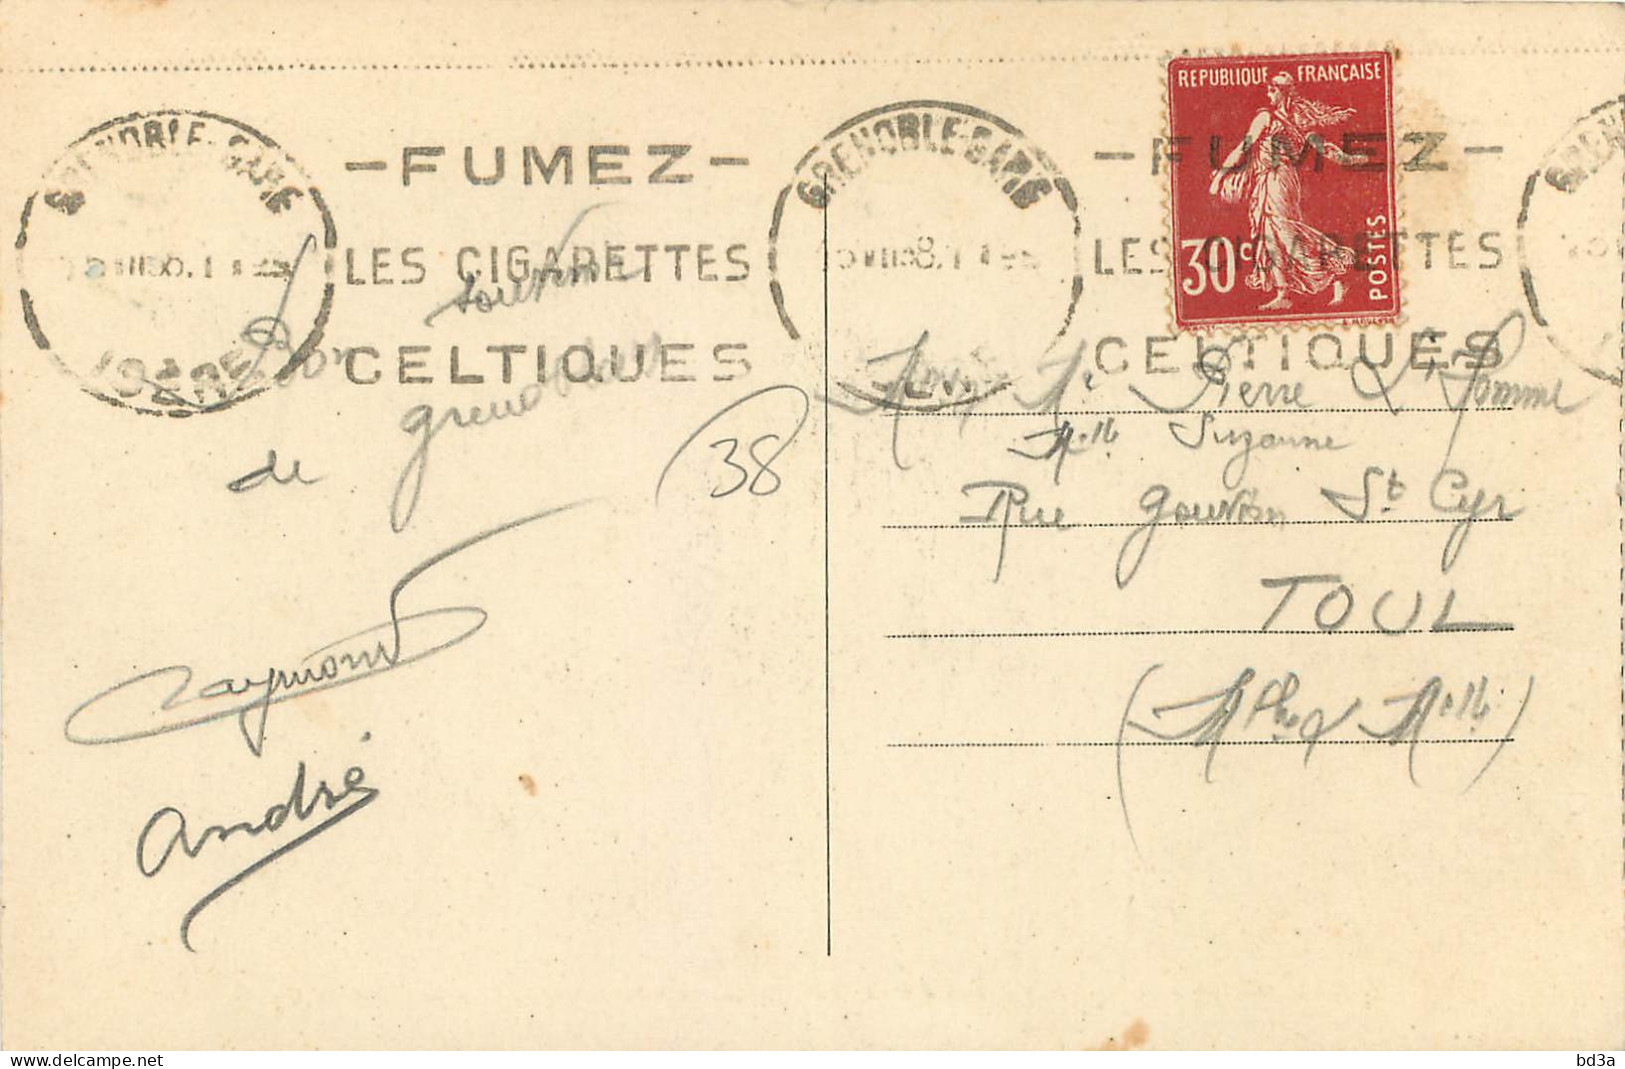 GRENOBLE-GARE
ISERE
– FUMEZ –
LES CIGARETTES
CELTIQUES
GRENOBLE-GARE
– FUMEZ –
LES CIGARETTES
CELTIQUES
REPUBLIQUE FRANÇAISE
30c
POSTES
Bon souvenir
de grenoble
Raymond
André
38
Pierre
Melle Suzanne
Rue Gouvion St Cyr
TOUL
(Mthe & Melle)
delcampe.net
bd3a